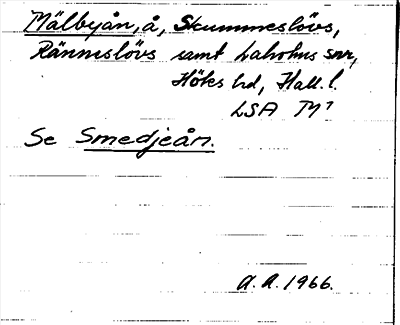 Mälbyån, å, Skummeslövs,
Ränneslövs samt Laholms snr,
Höks hd, Hall. l.
LSA M⁷
Se Smedjeån.
A. A. 1966.